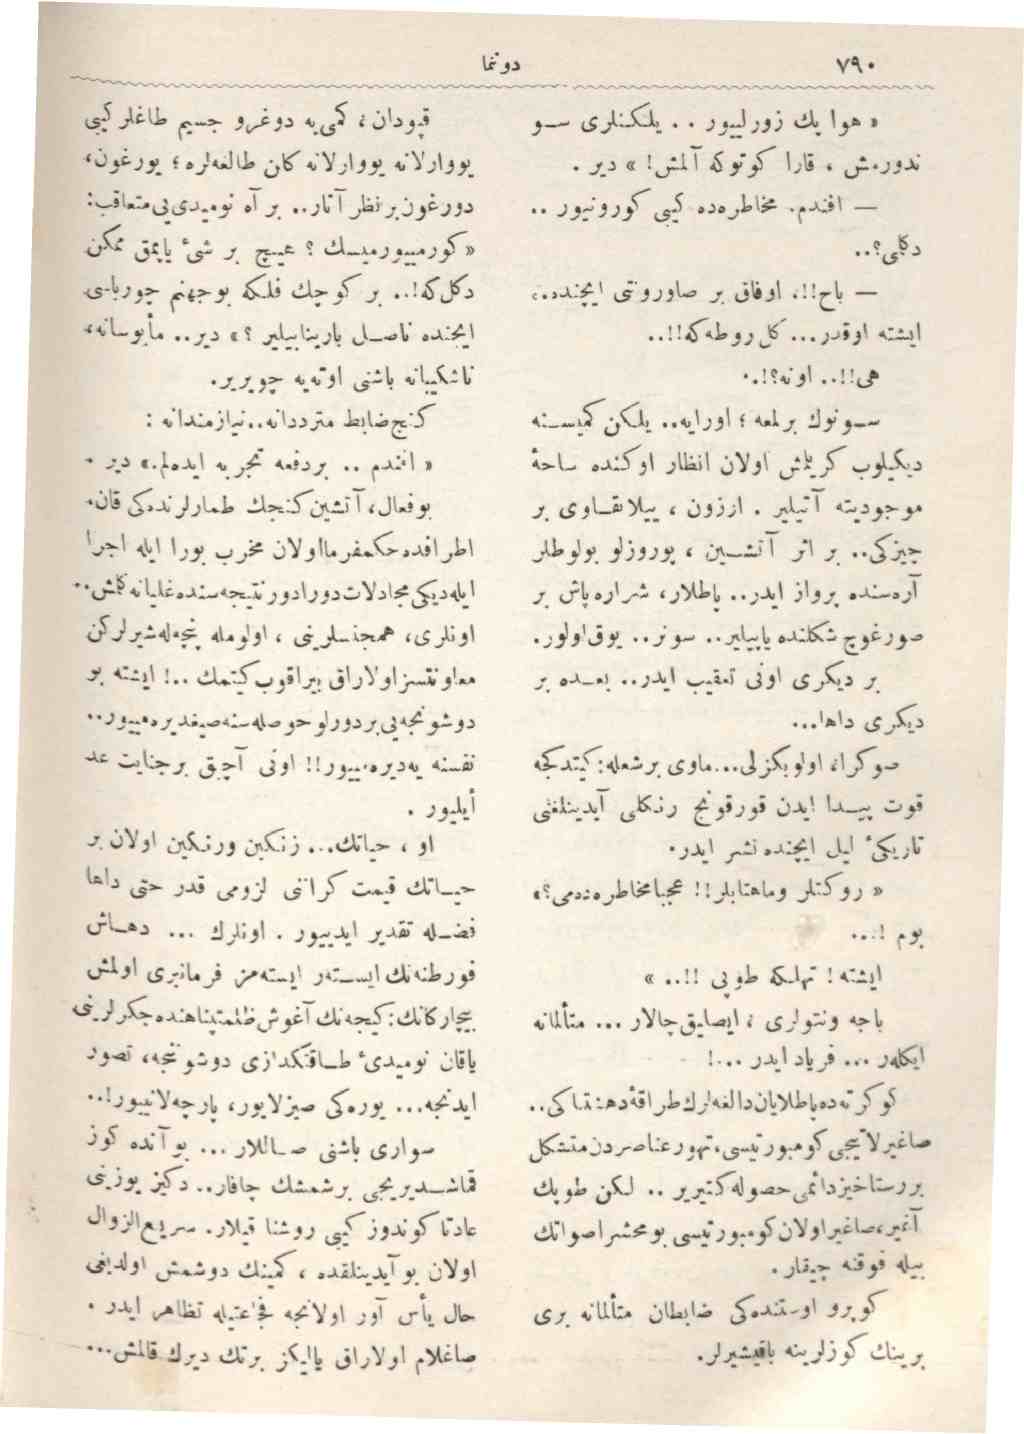 ٧٩٠
دونما
« هوا پك زورلییور . . یلكنلری سو
ندورمش ، قارا كوتوكه آلمش! » دیر .
— افندم. مخاطره‌ده كیبی كورونیور ..
دكلمی؟..
— باح!!. اوفاق بر صاوروتنی ایچنده..
ایشته اوقدر... كل روطه‌كه!!..
هی!!.. اونه؟!..
سونوك بر لمعه ؛ اورایه.. یلكن كمیسنه
دیكیلوب كریلمش اولان انظار اوكنده ساحهٔ
موجودیته آتیلیر . اوزون ، ییلانقاوی بر
چیزكی.. بر اثر آتشین ، یوروزلو بولوطلر
آره‌سنده پرواز ایدر.. پاطلار، شراره پاش بر
صورغوچ شكلنده یاپیلیر.. سونر.. یوق اولور.
بر دیكری اونی تعقیب ایدر.. بعده بر
دیكری داها...
صوكرا، اولو بكزلی...ماوی بر شعله: كیتدكجه
قوت پیدا ایدن قورقونج رنكلی آیدینلغنی
تاریكیٔ لیل ایچنده نشر ایدر.
« روكتلر وماهتابلر!! عجبا مخاطره‌ده‌می؟،
بوم !...
ایشته ! تهلكه طوپی !!.. »
باجه ونتولری ، ایصلیق چالار ... متألمانه
ایكلەر ... فریاد ایدر ...!
كوكرته‌ده پاطلایان دالغه‌لرك طراقهٔ دهشتناكی..
صاغیرلاتیجی كومبورتیسی، تهور عناصردن متشكل
بر رستاخیز دائمی حصوله كتیریر .. لكن طوپك
آغیر، صاغیر اولان كومبورتیسی بو محشر اصواتك
بیله فوقنه چیقار .
كوپرو اوستنده‌كی ضابطان متألمانه بری
برینك كوزلرینه باقیشیرلر.
قپودان، كمی‌یه دوغرو جسیم طاغلر كیبی
یووارلانه یووارلانه كلن طالغه‌لره ؛ یورغون،
دورغون بر نظر آتار.. بر آه نومیدی‌یی متعاقب:
«كورمییورمیسك ؟ هیچ بر شیٔ یاپمق ممكن
دكل‌كه!.. بر كوچك فلكه بو جهنم چورباسی
ایچنده ناصل بارینابیلیر ؟ » دیر.. مأیوسانه،
ناشكیبانه باشنی اوته‌یه چویریر.
كنج ضابط مترددانه..نیازمندانه :
« افندم .. بر دفعه تجربه ایده‌لم.» دیر .
بو فعال، آتشین كنجك طمارلرنده‌كی قان،
اطرافده حكمفرما اولان مخرب بورا ایله اجرا
ایله‌دیكی مجادلات دورادور نتیجه‌سنده غلیانه كلمش..
اونلری، همجنسلرینی ، اولومله پنچه‌له‌شیرلركن
معاونتسز اولاراق بیراقوب كیتمك ..! ایشته بو
دوشونجه‌یی بر دورلو حوصله‌سنه صیغدیره‌مییور..
نفسنه یه‌دیره‌مییور!! اونی آچیق بر جنایت عد
أیلیور .
او ، حیاتك... زنكین ورنكین اولان بر
حیاتك قیمت كراننی لزومی قدر حتی داها
فضله تقدیر ایدییور . اونلرك ... دهاش
فورطنه‌نك ایسته‌ر ایسته‌مز فرمانبری اولمش
بیچاركانك: كیجه‌نك آغوش ظلمتپناهنده جكرلرینی
یاقان نومیدیٔ طاقتكدازی دوشونجه، تصور
ایدنجه... یوره‌كی صیزلایور، پارچه‌لانییور!..
سواری باشنی صاللار ... بو آنده كوز
قماشدیریجی بر شمشك چاقار.. دكیز یوزینی
عادتا كوندوز كیبی روشنا قیلار. سریع‌الزوال
اولان بو آیدینلقده ، كمینك دوشمش اولدیغی
حال یأس آور اولانجه فجاعتیله تظاهر ایدر .
صاغلام اولاراق یالیكز برتك دیرك قالمش...